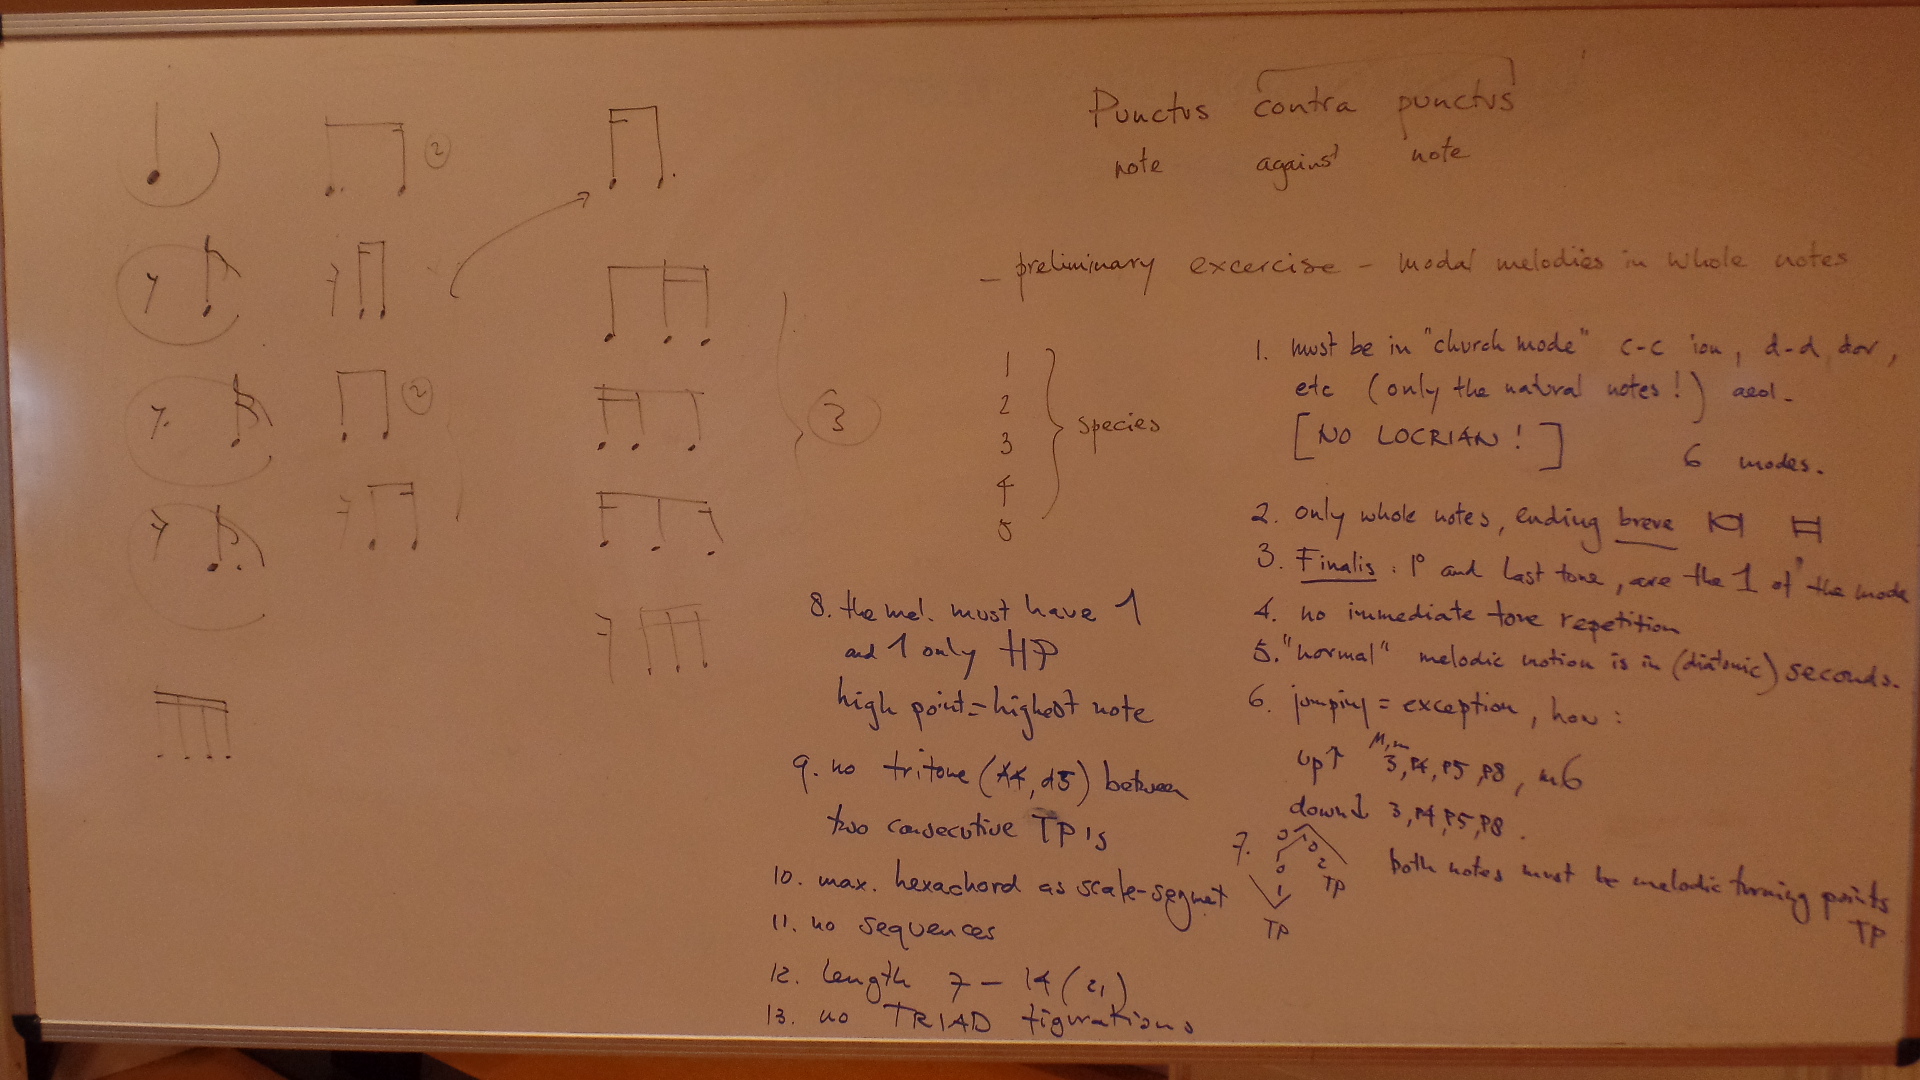 Punctus contra punctus
note against note
- preliminary excercise - modal melodies in whole notes
1
2
3
4
5
species
1. must be in "church mode" c-c ion, d-d dor,
etc (only the natural notes!) aeol.
[NO LOCRIAN!]
6 modes.
2. only whole notes, ending breve
3. Finalis: 1° and last tone, are the 1 of the mode
4. no immediate tone repetition
5. "normal" melodic motion is in (diatonic) seconds.
6. jumping = exception, how:
up↑ M,m 3, P4, P5, P8, m6
down↓ 3, P4, P5, P8.
7. both notes must be melodic turning points
TP
1
2
TP
TP
8. the mel. must have 1
and 1 only HP
high point = highest note
9. no tritone (A4, d5) between
two consecutive TP's
10. max. hexachord as scale-segment
11. no sequences
12. length 7 - 14 (21)
13. no TRIAD figurations
2
2
3